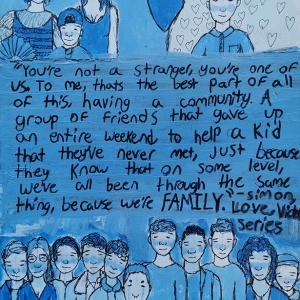 "You're not a stranger, you're one of
us. To me, thats the best part of all
of this, having a community. A
group of friends that gave up
an entire weekend to help a kid
that they've never met, just because
they know that on some level,
we've all been through the same
thing, because we're FAMILY." - simon,
Love, Victor
series